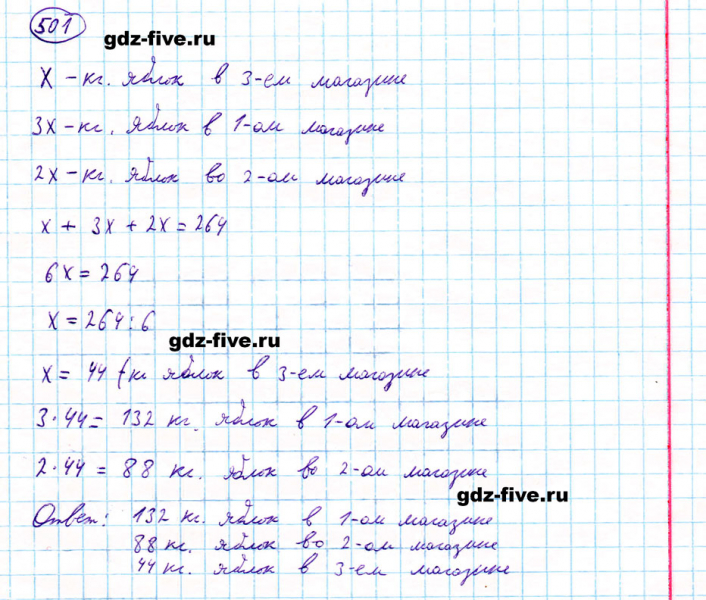 501
gdz-five.ru
x - кг. яблок в 3-ем магазине
3x - кг. яблок в 1-ом магазине
2x - кг. яблок во 2-ом магазине
x + 3x + 2x = 264
6x = 264
x = 264 : 6
gdz-five.ru
x = 44 (кг яблок в 3-ем магазине
3 · 44 = 132 кг. яблок в 1-ом магазине
2 · 44 = 88 кг. яблок во 2-ом магазине
gdz-five.ru
Ответ: 132 кг. яблок в 1-ом магазине
88 кг. яблок во 2-ом магазине
44 кг. яблок в 3-ем магазине